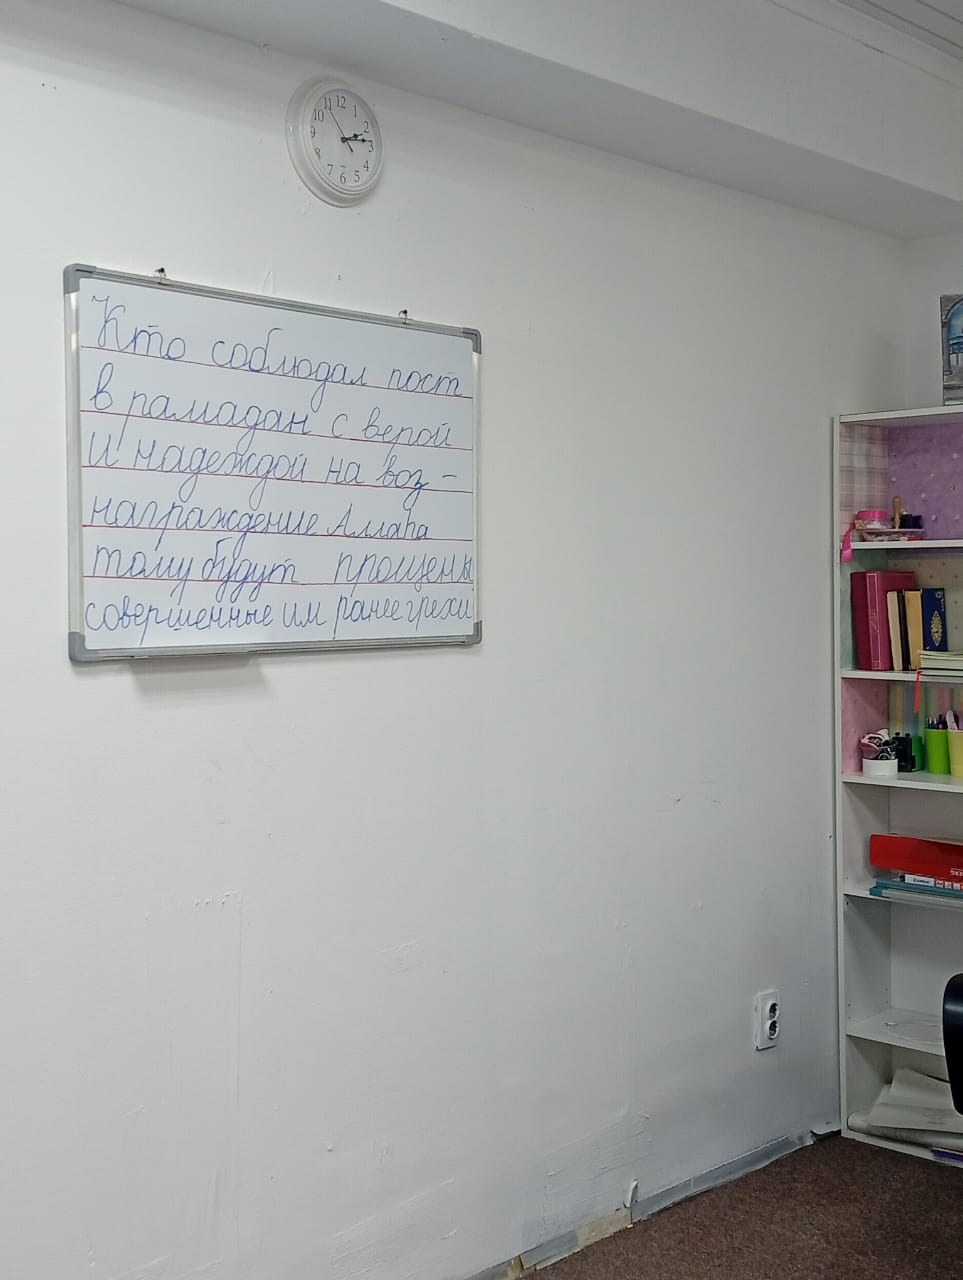 12
1
2
3
4
5
6
7
8
9
10
11
Кто соблюдал пост
в рамадан с верой
и надеждой на воз-
награждение Аллаha
тому будут прощены
совершенные им ранее грехи